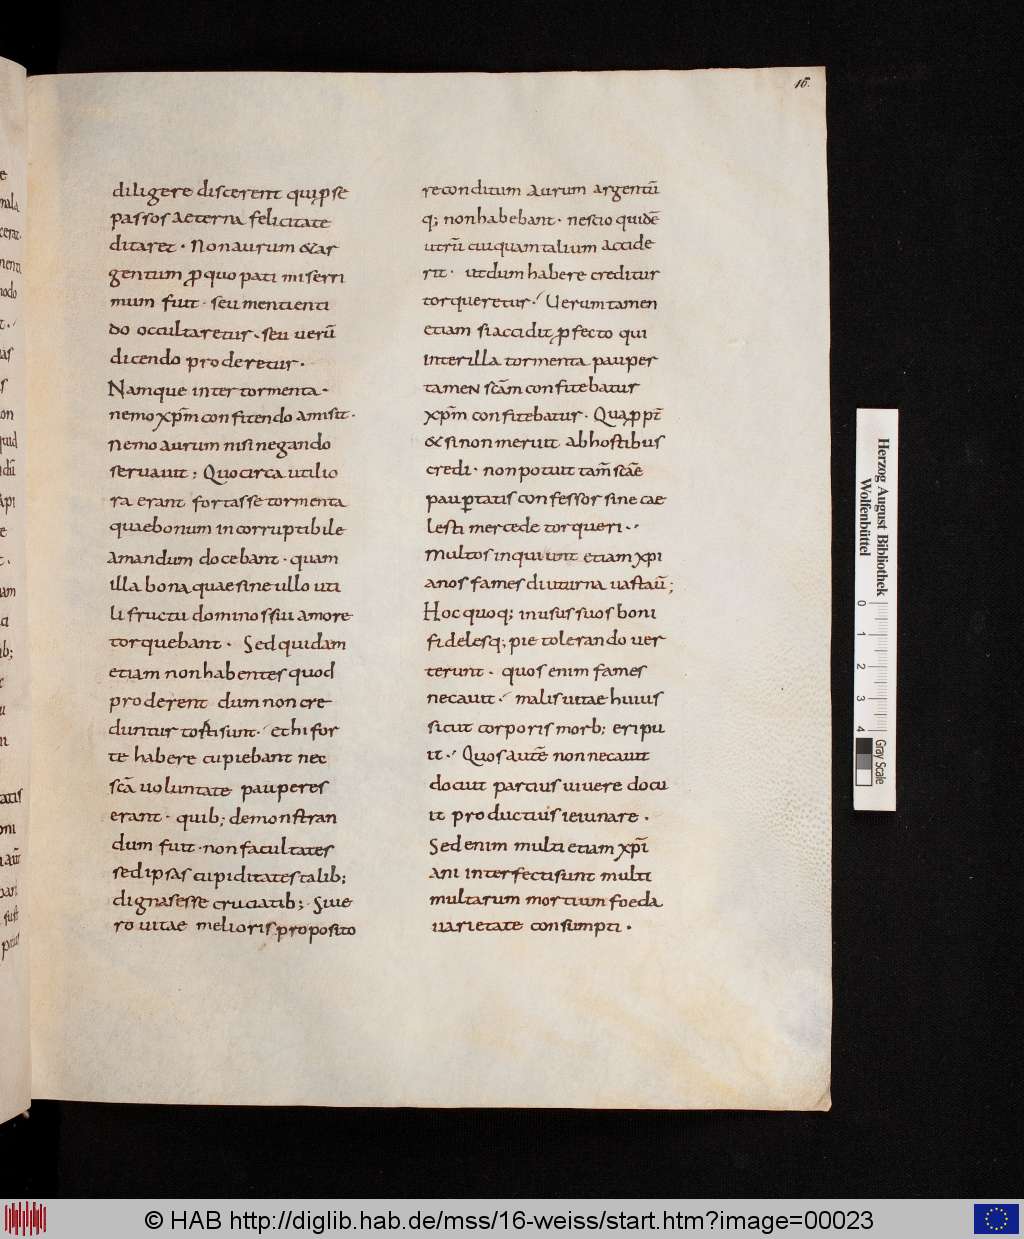 16.
diligere discerent qui p se
passos aeterna felicitate
ditaret · Non aurum & ar
gentum ꝓ quo pati miserri
mum fuit · seu mentienti
do occultaretur · seu uerū
dicendo proderetur ·
Namque inter tormenta ·
nemo xp̄m confitendo amisit ·
Nemo aurum nisi negando
seruauit ; Quocirca utilio
ra erant fortasse tormenta
quae bonum incorruptibile
amandum docebant · quam
illa bona quae sine ullo uti
li fructu dominos sui amore
torquebant · Sed quidam
etiam non habentes quod
proderent dum non cre
duntur tosti sunt · et hi for
te habere cupiebant nec
scā uoluntate pauperes
erant · quib; demonstran
dum fuit · non facultates
sed ipsas cupiditates talib;
dignas esse cruciatib; · Si ue
ro uitae melioris proposito
reconditum aurum argentū
q; non habebant · nescio quidē
utrū cuiquam talium accide
rit · ut dum habere creditur
torqueretur · Uerum tamen
etiam si accidit ꝓfecto qui
inter illa tormenta pauper
tamen scām confitebatur
xp̄m confitebatur · Quaꝓpt̄
& si non meruit ab hostibus
credi · non potuit tam̄ scāe
paup̱tatis confessor sine cae
lesti mercede torqueri ·
Multos inquiunt etiam xp̄i
anos fames diuturna uastau̅ ;
Hoc quoq; in usus suos boni
fideles q; pie tolerando uer
terunt · quos enim fames
necauit · malis uitae huius
sicut corporis morb; eripu
it · Quos autē non necauit
docuit parcius uiuere docu
it productius ieiunare ·
Sed enim multi etiam xp̄i
ani interfecti sunt multi
multarum mortium foeda
uarietate consumpti ·
Herzog August Bibliothek
Wolfenbüttel
0 1 2 3 4
Gray Scale
© HAB http://diglib.hab.de/mss/16-weiss/start.htm?image=00023